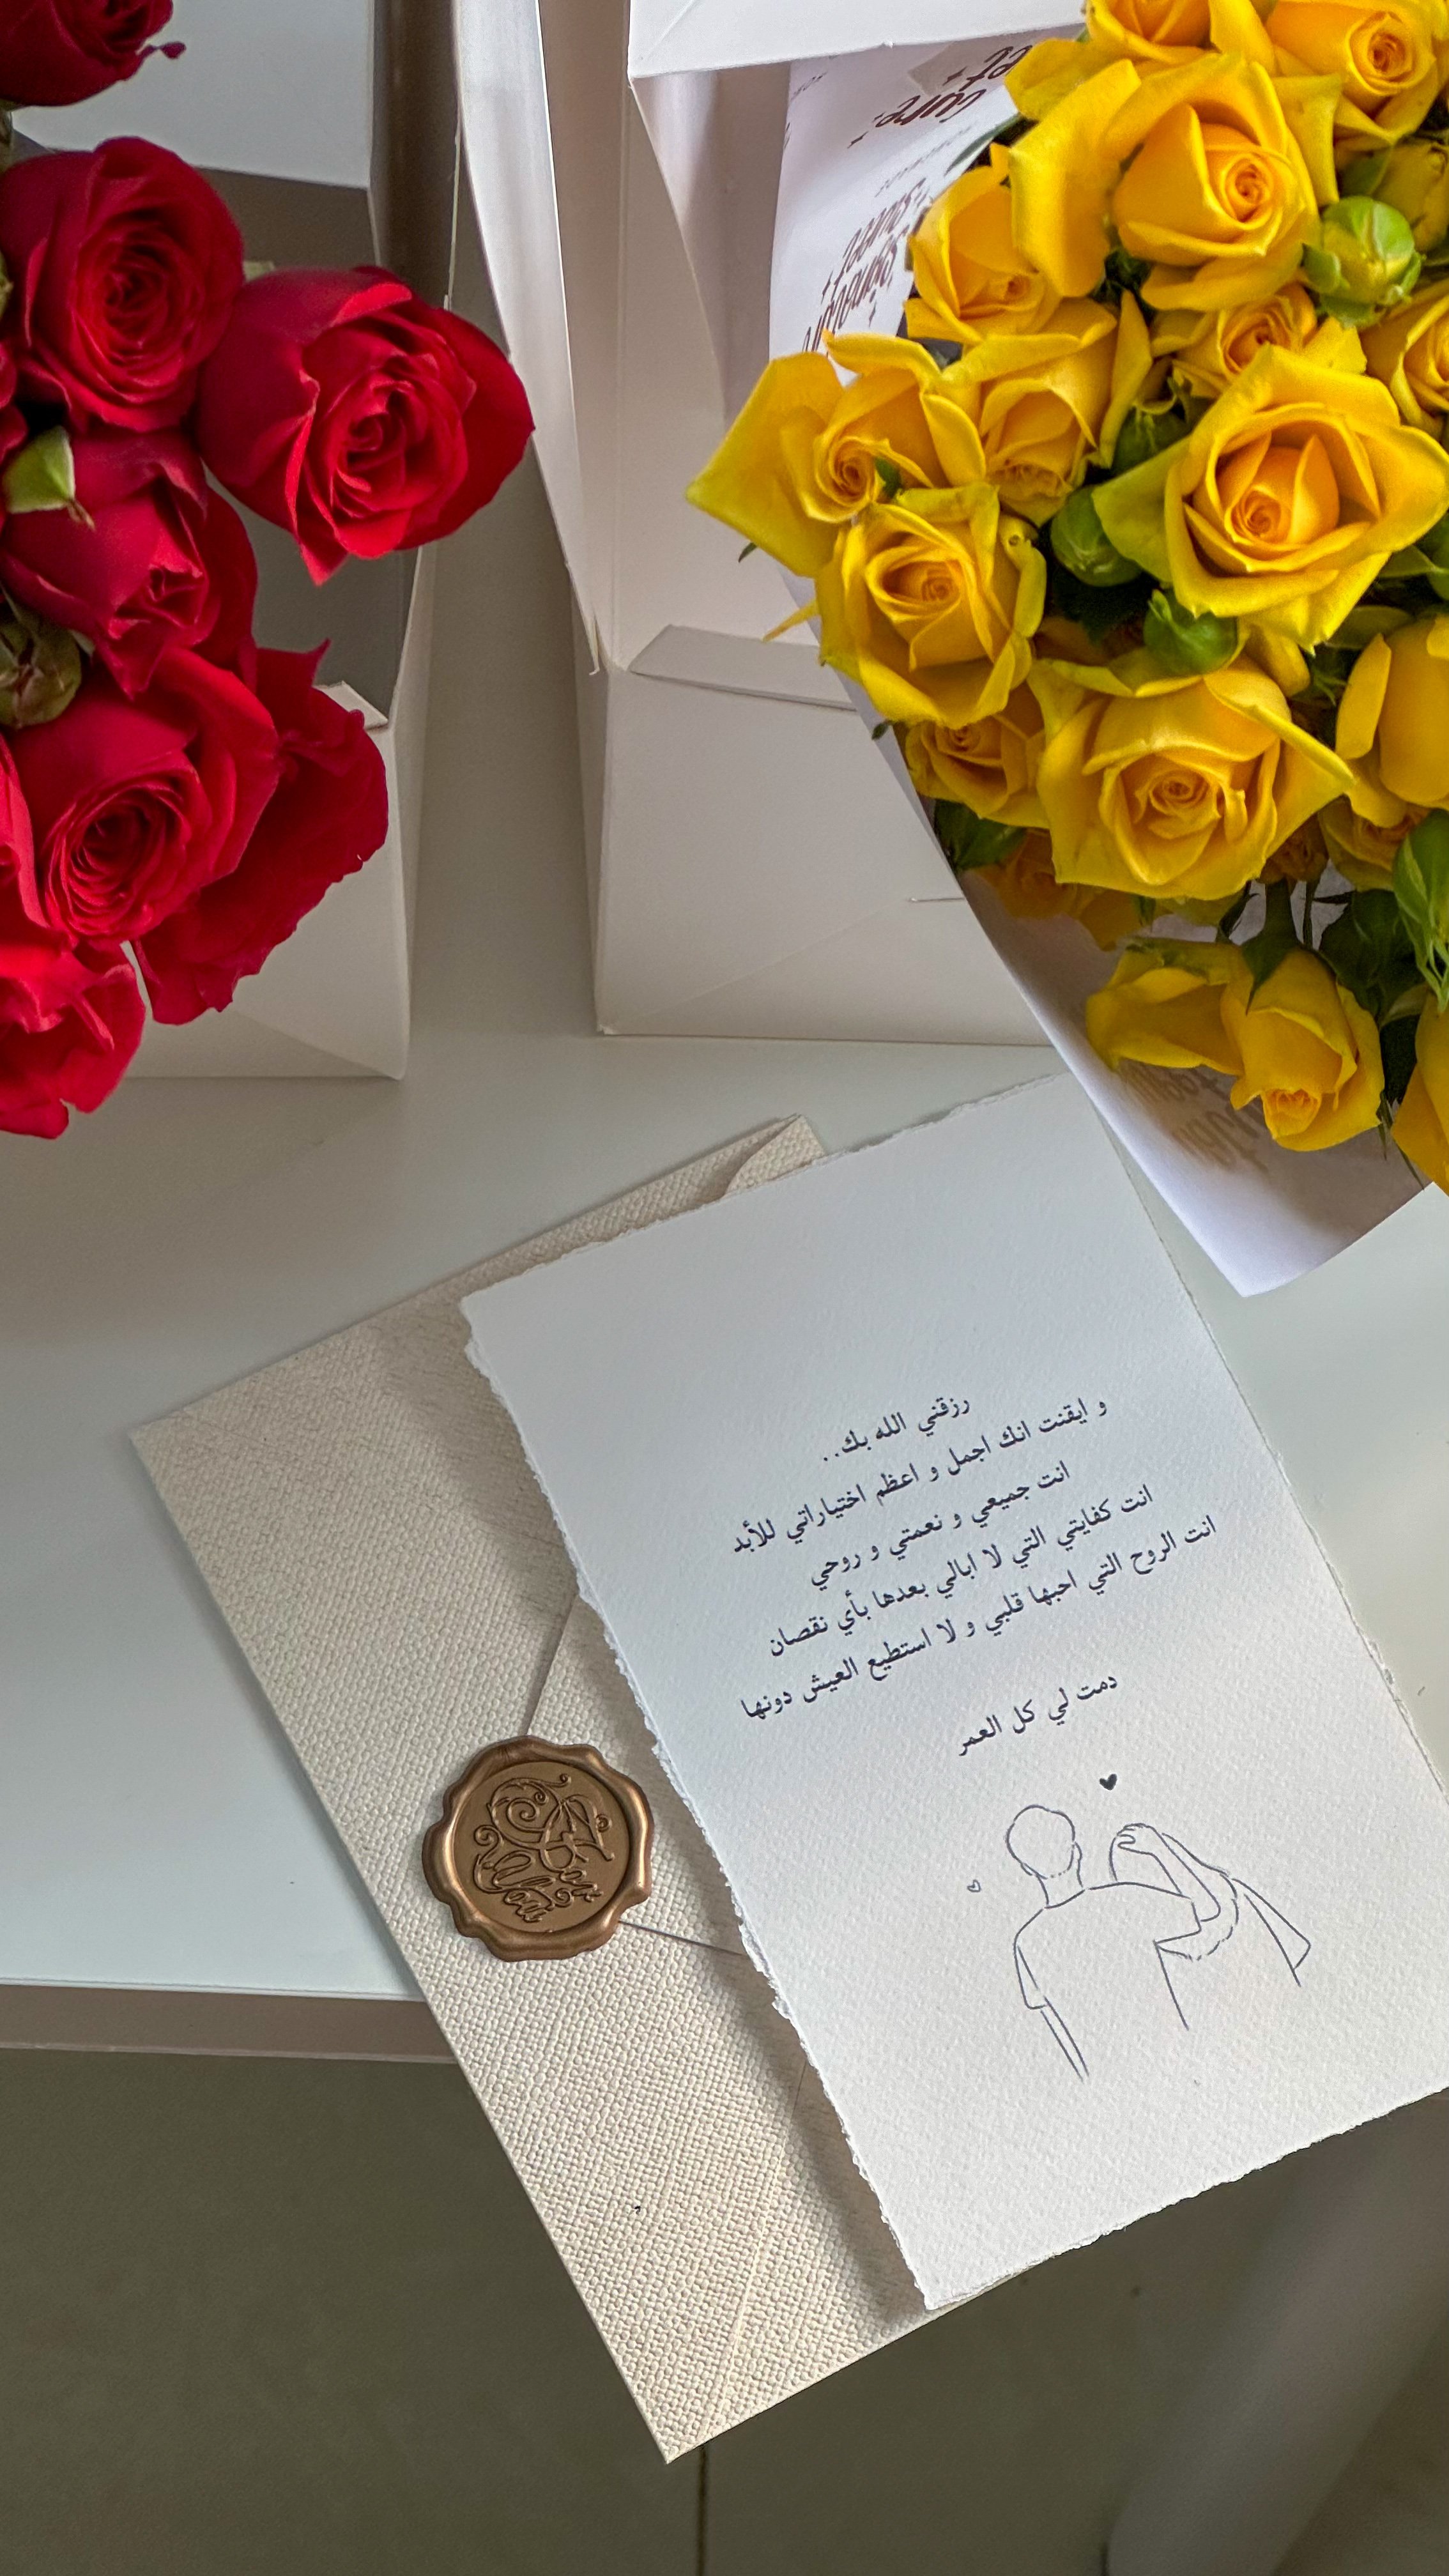 رزقني الله بك..
و ايقنت انك اجمل و اعظم اختياراتي للأبد
انت جميعي و نعمتي و روحي
انت كفايتي التي لا ابالي بعدها بأي نقصان
انت الروح التي احبها قلبي و لا استطيع العيش دونها
دمت لي كل العمر
Just
For
You